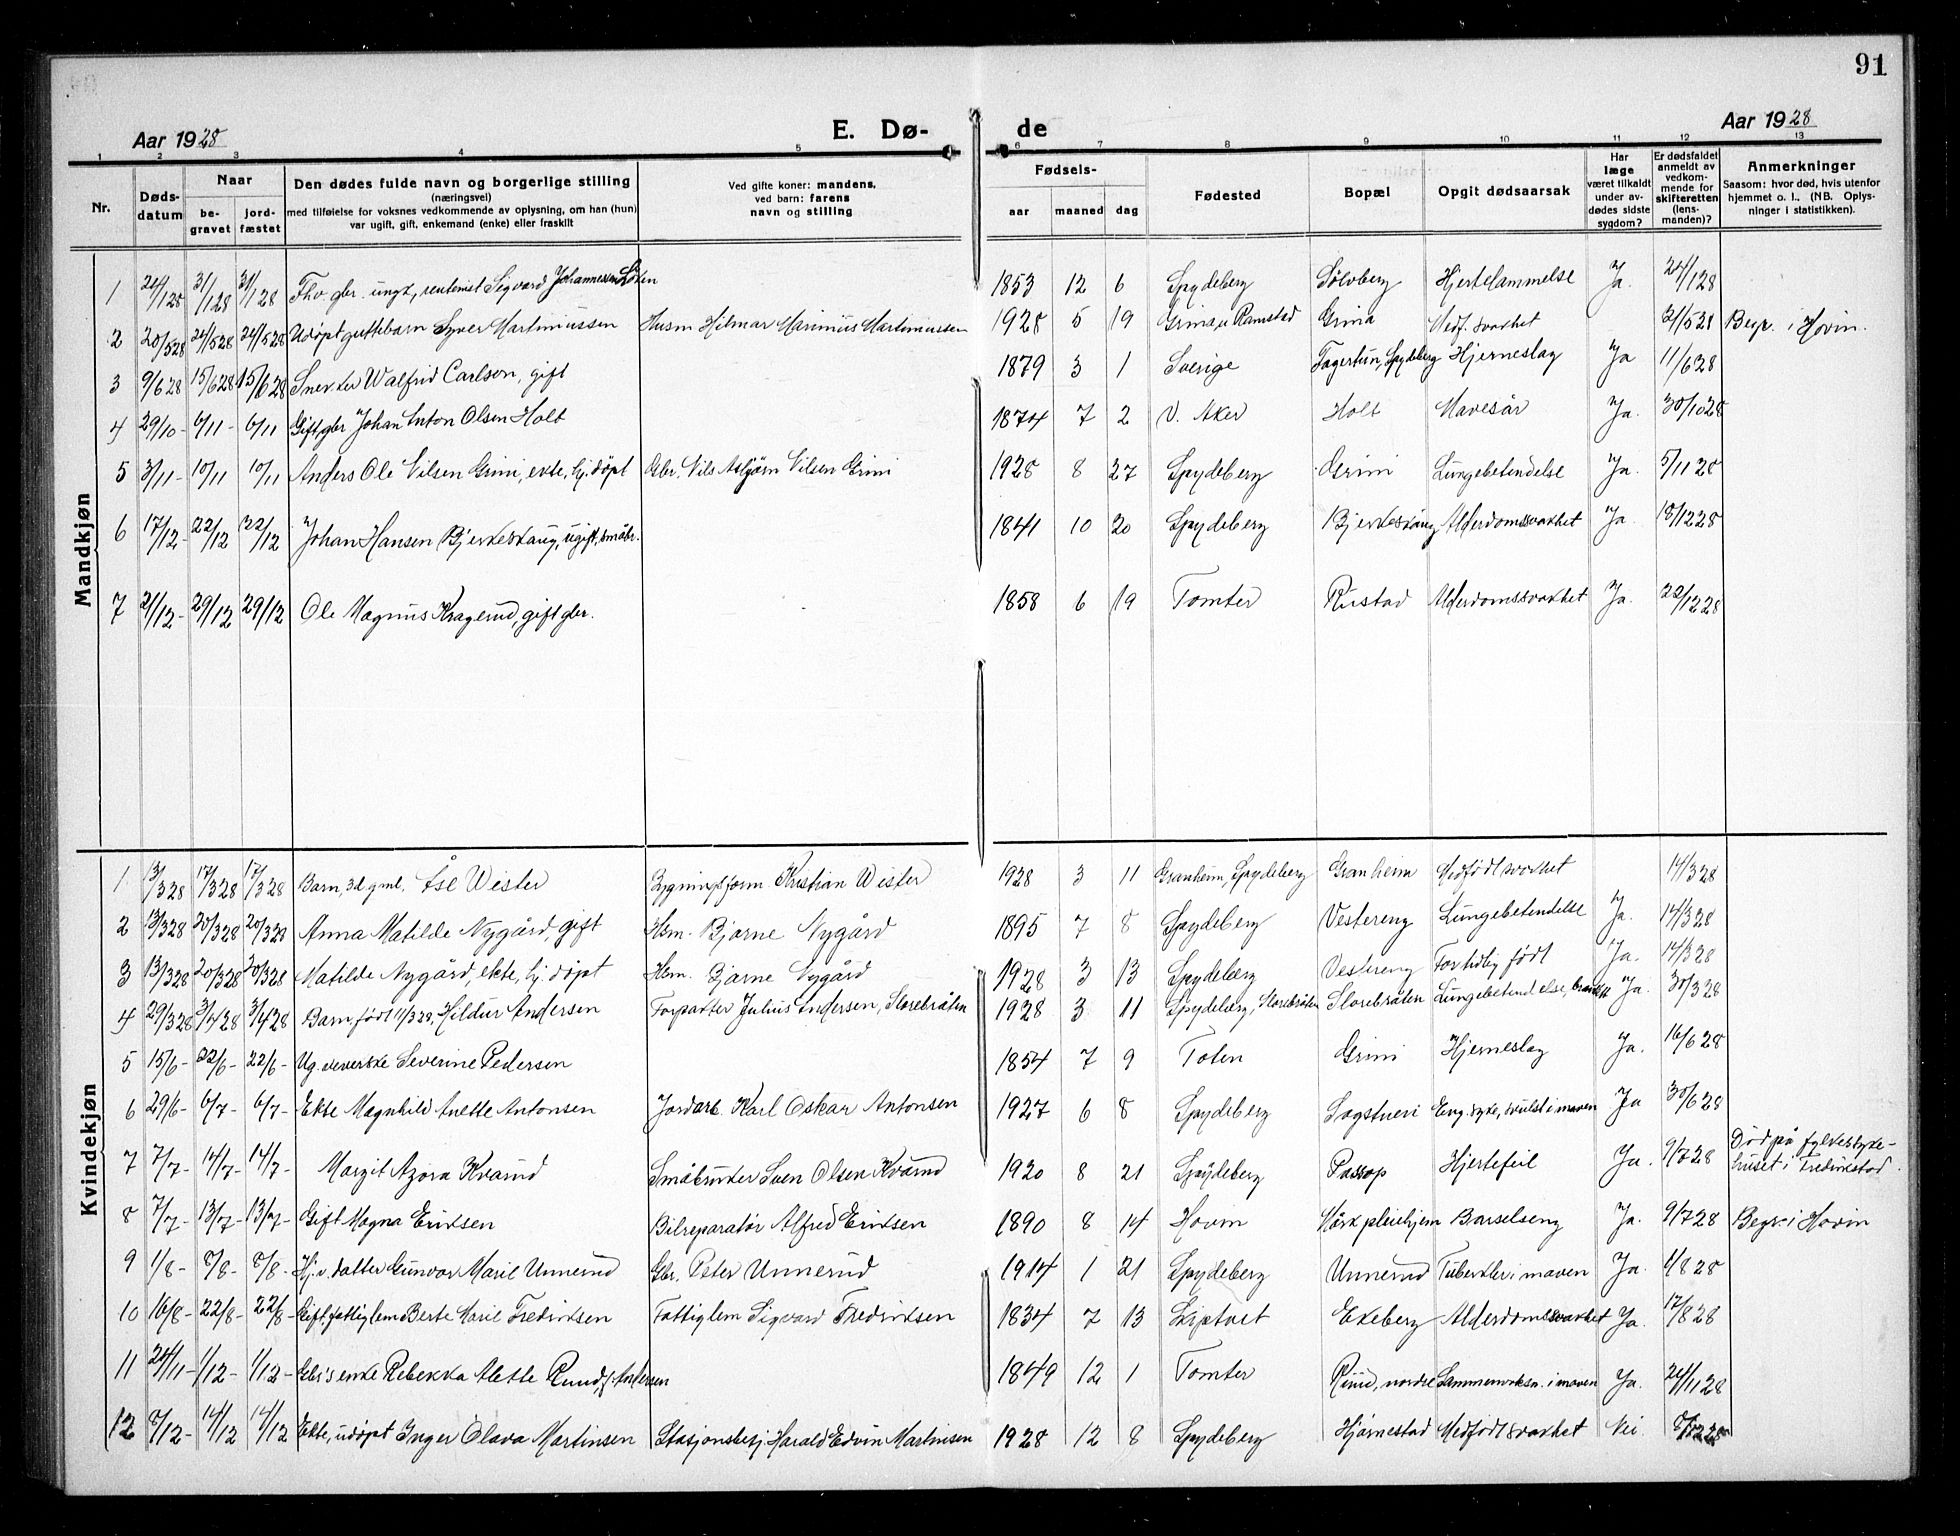 91
Aar 1928 E. Dø- de Aar 1928
1 2 3 4 5 6 7 8 9 10 11 12 13
Nr. Døds-datum Naar be-gravet jord-fæstet Den dødes fulde navn og borgerlige stilling (næringsvei) med tilføielse for voksnes vedkommende av oplysning, om han (hun) var ugift, gift, enkemand (enke) eller fraskilt Ved gifte koner: mandens, ved barn: farens navn og stilling Fødsels- aar maaned dag Fødested Bopæl Opgit dødsaarsak Har læge været tilkaldt under av-dødes sidste sygdom? Er dødsfaldet anmeldt av vedkom-mende for skifteretten (lens-manden)? Anmerkninger Saasom: hvor død, hvis utenfor hjemmet o. l.. (NB. Oplys-ninger i statistikken).
Mandkjøn
1 31/128 31/128 Fhv. gbr. ungk, rentenist Sigvard Johannessen 1853 12 6 Spydeberg Solvberg Hjertelammelse Ja. 24/128
2 20/528 24/528 24/528 Udöpt guttebarn Syver Martiniussen Husm Hilmar Marinius Martiniussen 1928 5 19 Grina u Ramstad Grina Medf. svakhet 21/528 Begr. i Hovin.
3 9/628 15/628 15/628 Snekker Walfrid Carlson, gift 1879 3 1 Sverige Fagertun, Spydeberg Hjerneslag Ja 11/628
4 29/10- 6/11- 6/11 Gift, gbr Johan Anton Olsen Holt 1874 7 2 V. Aker Holt Mavesår Ja. 30/1028
5 3/11- 10/11 10/11 Anders Ole Nilsen Grini, ekte, hj. döpt Gbr. Nils Asbjörn Nilsen Grini 1928 8 27 Spydeberg Grini Lungebetendelse Ja. 5/1128
6 17/12- 22/12 22/12 Johan Hansen Bjerkeskaug, ugift, småbr. 1841 10 20 Spydeberg Bjerkeskaug Alderdomssvakhet Ja. 18/1228
7 21/12- 29/12 29/12 Ole Magnus Kragerud, gift gbr. 1858 6 19 Tomter Rustad Alderdomssvakhet Ja. 22/1228
Kvindekjøn
1 13/328 17/328 17/328 Barn, 3 d. gml. Åse Wister Bygningsform. Kristian Wister 1928 3 11 Granheim, Spydeberg Granheim Medfödt svakhet 14/328
2 13/328 20/328 20/328 Anna Matilde Nygård, gift Hsm. Bjarne Nygård 1895 7 8 Spydeberg Vestereng Lungebetendelse Ja. 14/328
3 13/328 20/328 20/328 Matilde Nygård, ekte, hj. döpt Hsm. Bjarne Nygård 1928 3 13 Spydeberg Vestereng For tidlig født Ja. 14/328
4 29/328 3/428 3/428 Barn, født 11/328, Hildur Andersen Forpakter Julius Andersen, Storebråten 1928 3 11 Spydeberg, Storebråten Storebråten Lungebetendelse, Ja. 30/328
5 15/6- 22/6- 22/6- Ug. veverske Severine Pedersen 1854 7 9 Toten Grini Hjerneslag Ja. 16/628
6 29/6- 6/7- 6/7- Ekte Magnhild Anette Antonsen Jordarb. Karl Oskar Antonsen 1927 6 8 Spydeberg Sagstuen Eng. syke, svulst i maven Ja 30/628
7 7/7- 14/7- 14/7- Margit Azora Kvarud Småbruker Sven Olsen Kvarud 1920 8 21 Spydeberg Passop Hjertefeil Ja. 9/728 Död på fylkessyke-huset i Fredrikstad.
8 7/7- 13/7- 13/7- Gift Magna Eriksen Bilreparatör Alfred Eriksen 1890 8 14 Hovin Mörk pleiehjem Barselseng Ja. 9/728 Begr. i Hovin
9 1/8- 8/8- 8/8- Hj.v. datter Gunvor Marie Unnerud Gbr. Peter Unnerud 1914 1 21 Spydeberg Unnerud Tuberkler i maven Ja. 1/828
10 16/8- 22/8- 22/8- Gift, fattiglem Berte Marie Fredriksen Fattiglem Sigvard Fredriksen 1834 7 13 Skiptvet Ekeberg Alderdomssvakhet Ja. 17/828
11 24/11- 1/12- 1/12- Gbr's enke Rebekka Alette Ruud, f. Andersen 1849 12 1 Tomter Ruud, nordre Sammenvoksn. i maven Ja. 24/1128
12 8/12- 14/12 14/12 Ekte, udöpt Inger Olava Martinsen Stasjonsbetj Harald Edvin Martinsen 1928 12 8 Spydeberg Hjörnestad Medfödt svakhet Nei